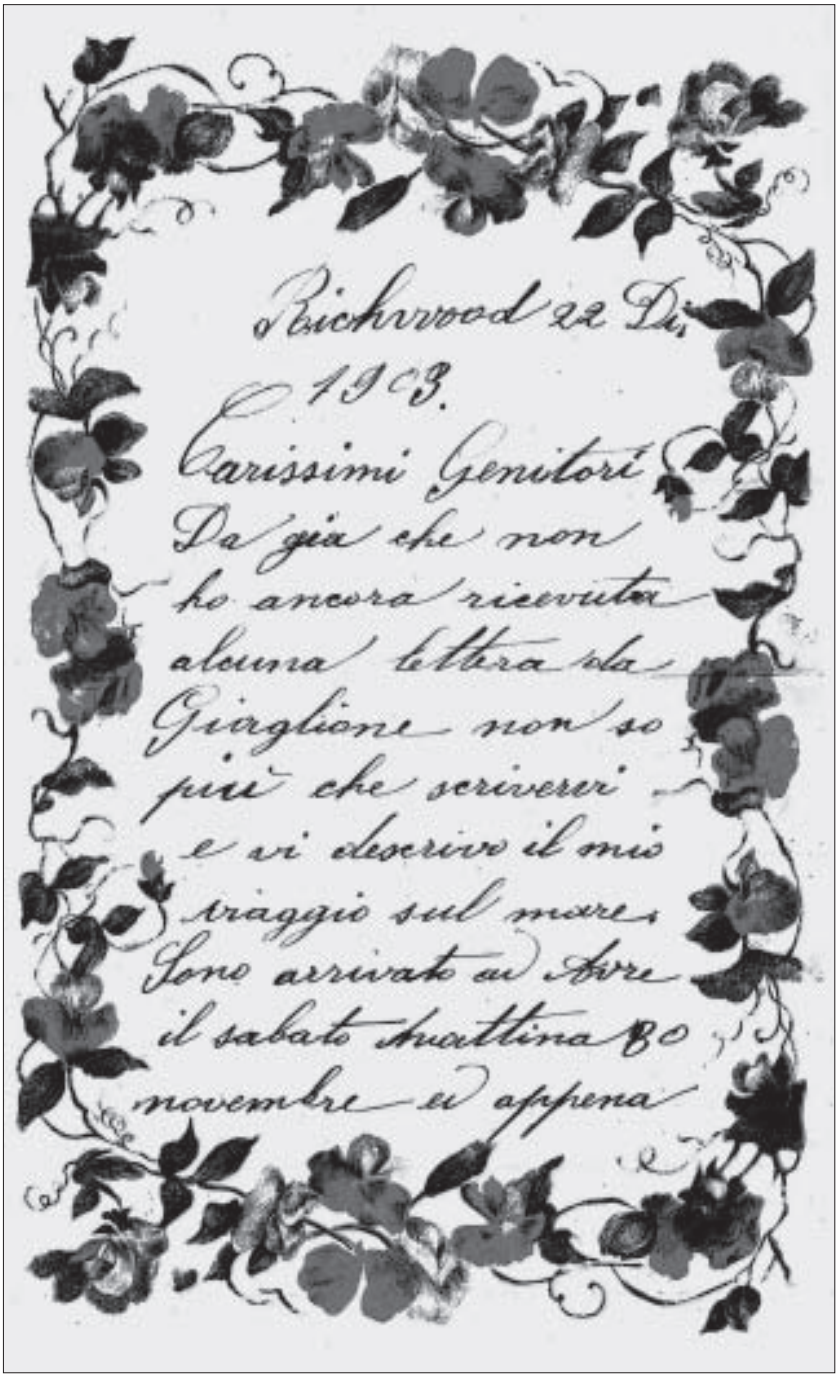 Richwood 22 Di,
1903.
Carissimi Genitori
Da gia che non
ho ancora ricevuta
alcuna lettera da
Giaglione non so
più che scrivervi
e vi descrivo il mio
viaggio sul mare.
Sono arrivato ad Avre
il sabato mattina 30
novembre ed appena